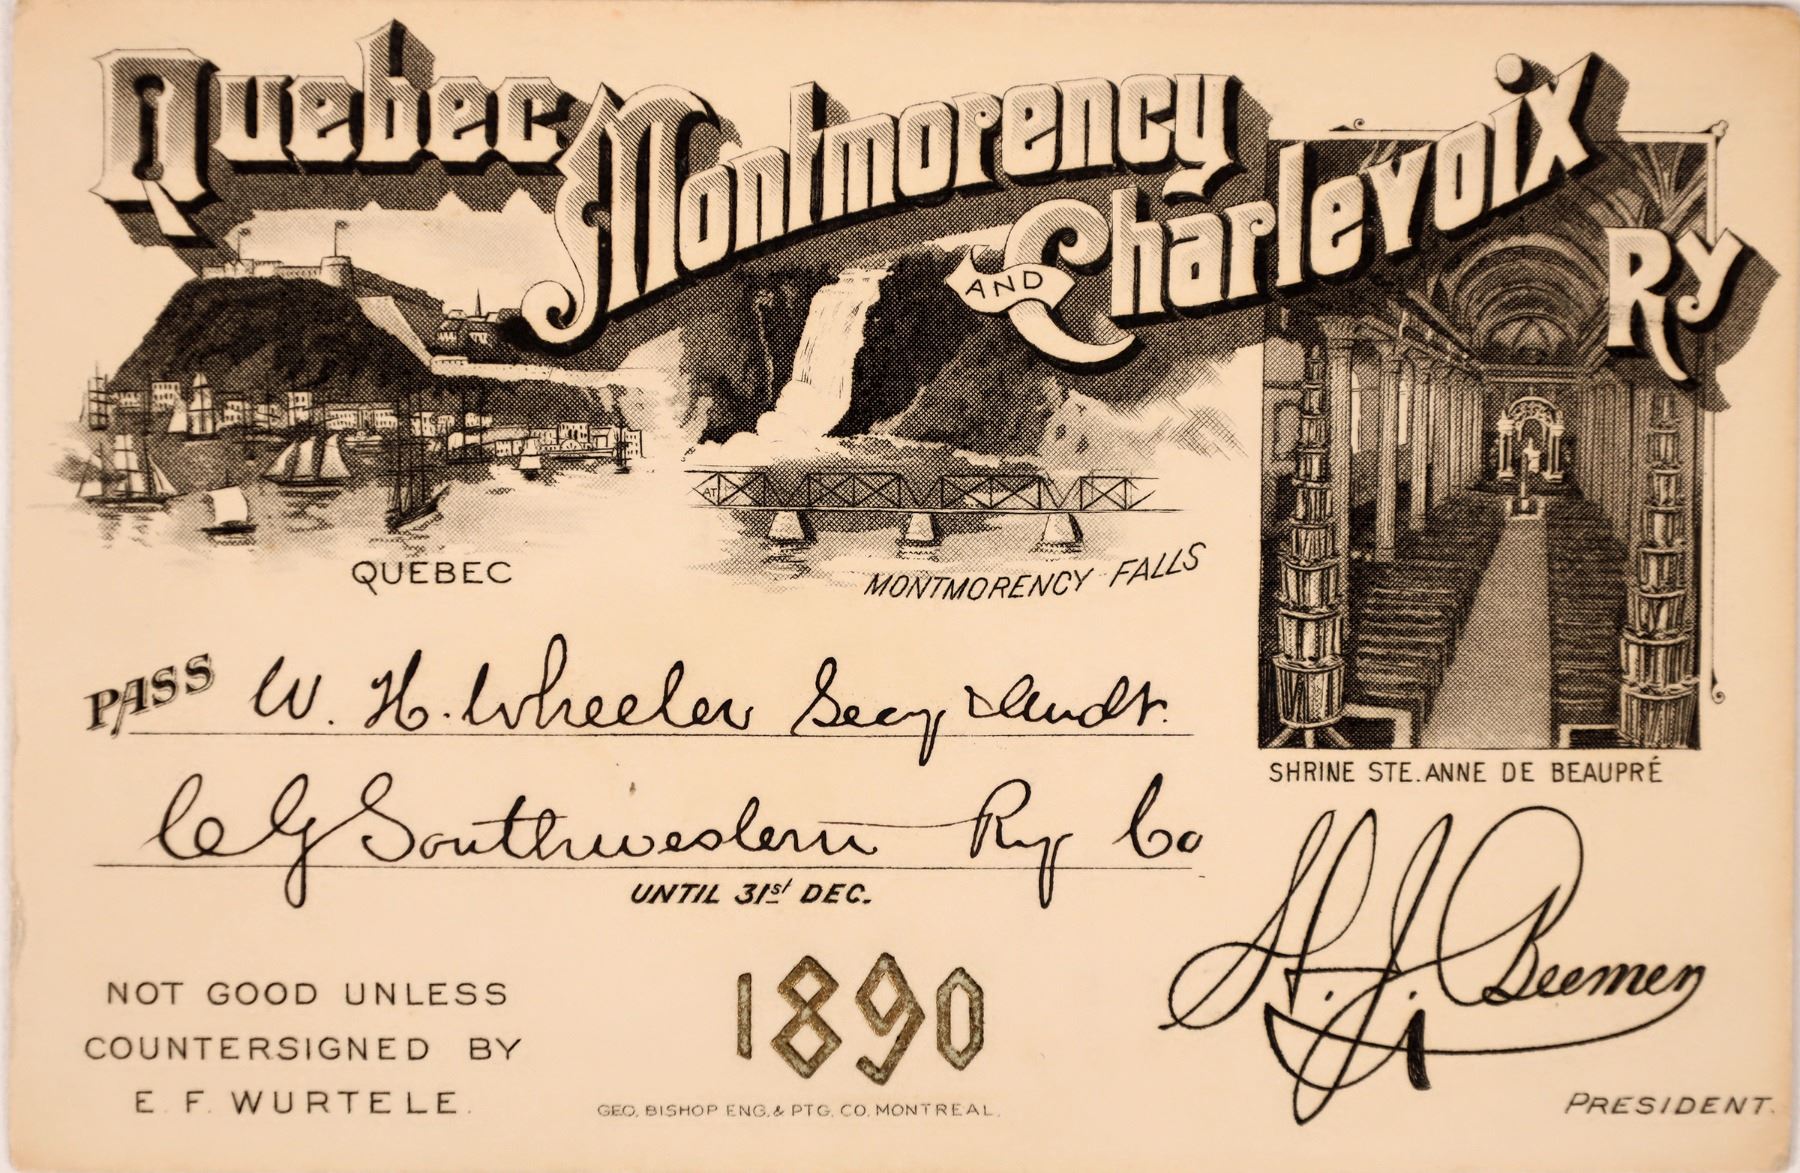 Quebec Montmorency AND Charlevoix Ry
AT
QUEBEC
MONTMORENCY FALLS
SHRINE STE. ANNE DE BEAUPRÉ
PASS W. H. Wheeler Secy & Audt.
C & G Southwestern Ry Co
UNTIL 31st DEC.
1890
NOT GOOD UNLESS
COUNTERSIGNED BY
E. F. WURTELE.
H. J. Beemer
PRESIDENT.
GEO. BISHOP ENG. & PTG. CO. MONTREAL.